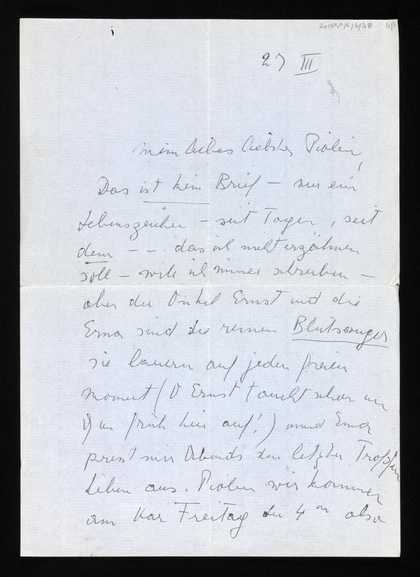 27 III
mein liebes liebstes Piolin,
Das ist kein Brief — nur ein
Lebenszeichen — seit Tagen, seit
dem — — das ich nicht erzählen
soll — will ich immer schreiben —
aber der Onkel Ernst und die
Erna sind die reinen Blutsauger
sie lauern auf jeden freien
moment (O Ernst taucht schon um
früh hier auf!) und Erna
presst mir Abends den letzten Tropfen
Leben aus. Piolin wir kommen
am Kar Freitag den 4ten also